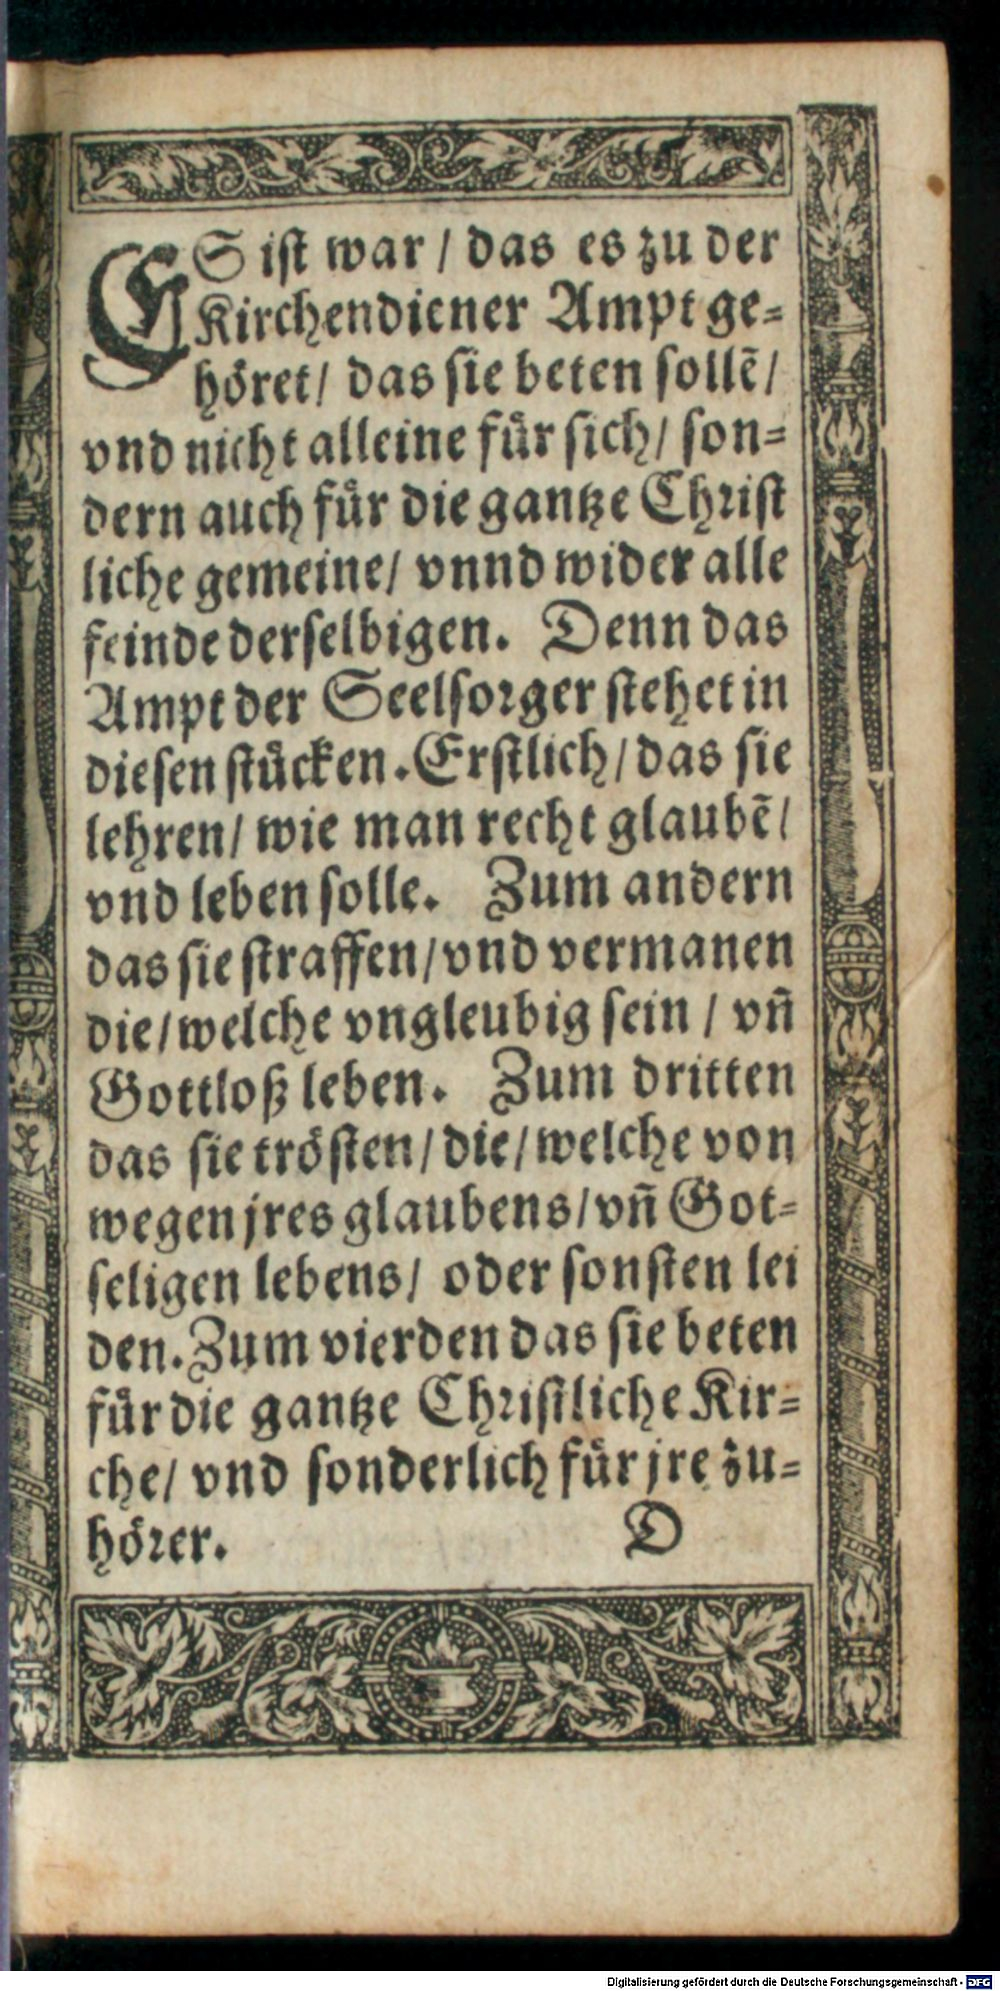 ES ist war / das es zu der
Kirchendiener Ampt ge=
höret / das sie beten sollē /
vnd nicht alleine für sich / son=
dern auch für die gantze Christ
liche gemeine / vnnd wider alle
feinde derselbigen. Denn das
Ampt der Seelsorger stehet in
diesen stücken. Erstlich / das sie
lehren / wie man recht glaubē /
vnd leben solle. Zum andern
das sie straffen / vnd vermanen
die / welche vngleubig sein / vñ
Gottloß leben. Zum dritten
das sie trösten / die / welche von
wegen jres glaubens / vñ Got=
seligen lebens / oder sonsten lei
den. Zum vierden das sie beten
für die gantze Christliche Kir=
che / vnd sonderlich für jre zu=
hörer. D
Digitalisierung gefördert durch die Deutsche Forschungsgemeinschaft - DFG